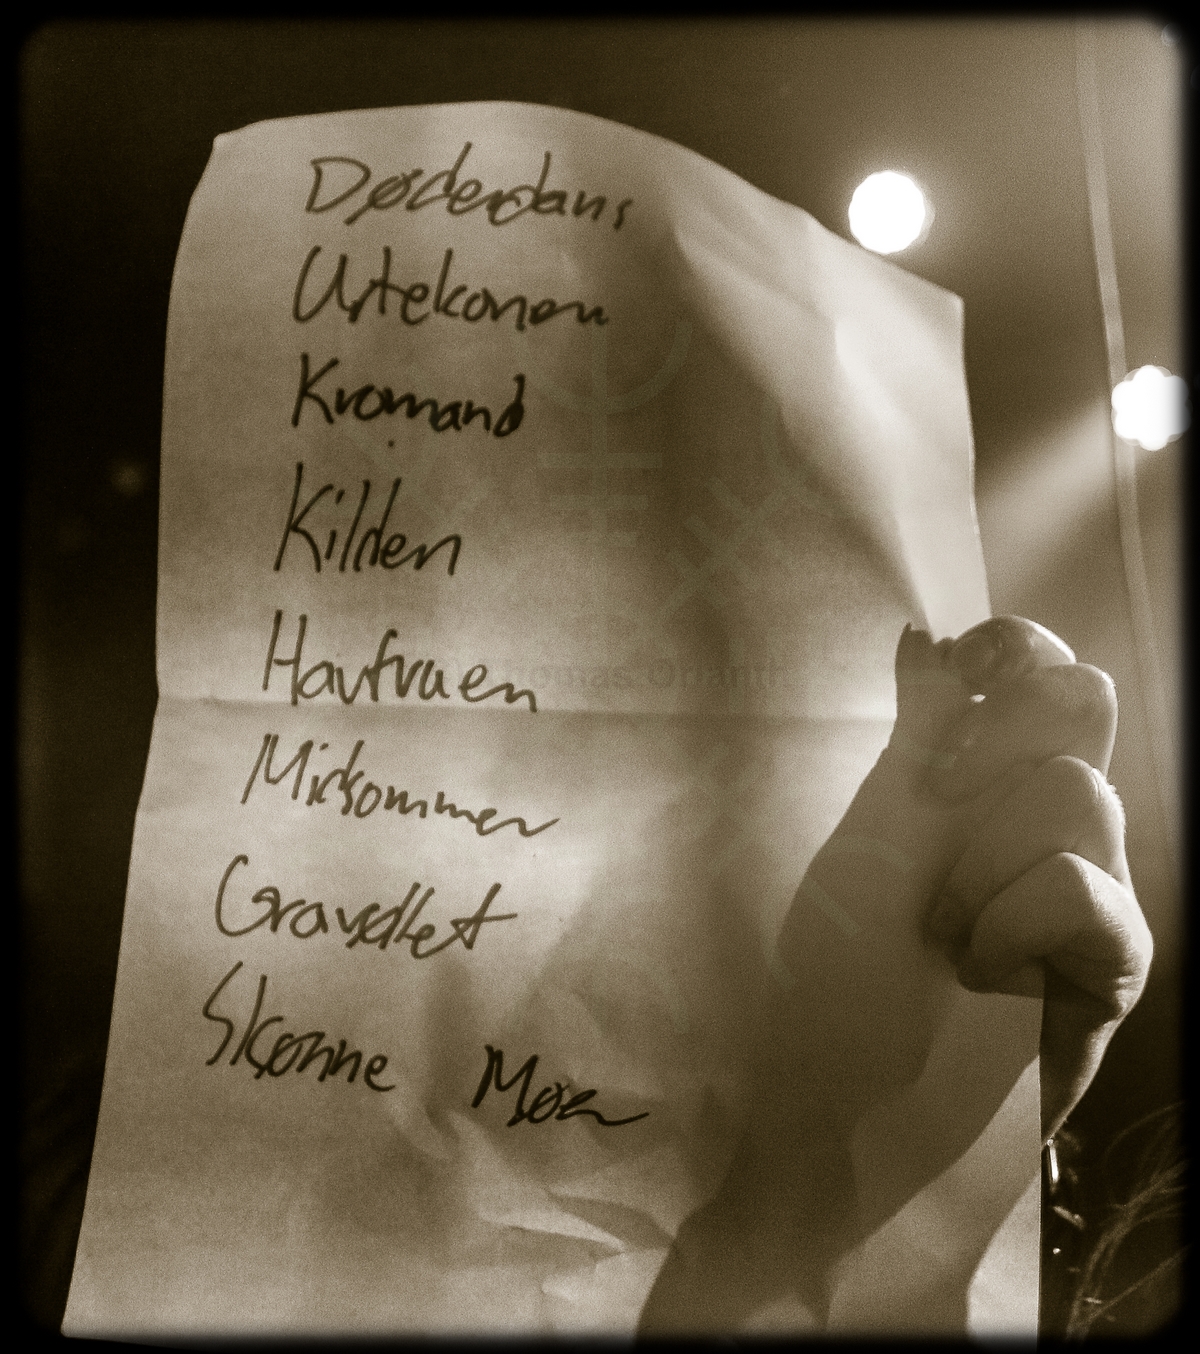 Dødendans
Urtekonen
Kromand
Kilden
Havfruen
Midsommer
Gravøllet
Skønne Møer